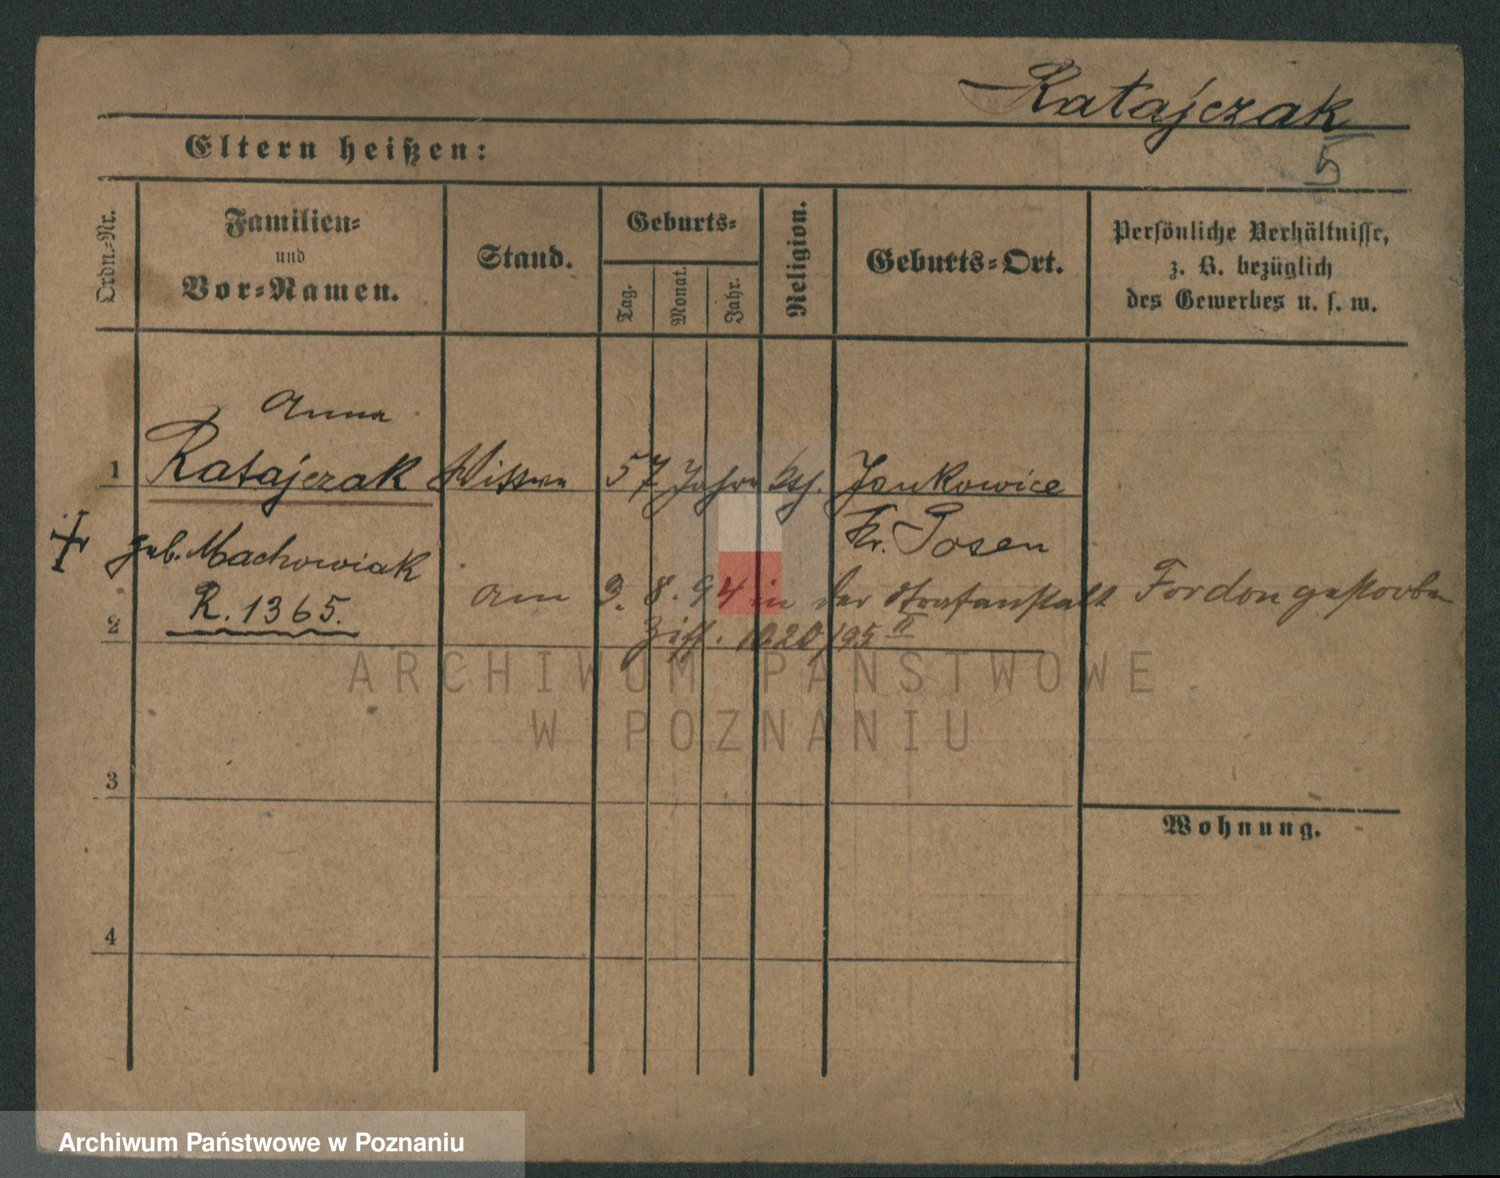 Ratajczak
Eltern heißen:
5
Ordn.-Nr.
Familien-
und
Vor-Namen.
Stand.
Geburts-
Tag.
Monat.
Jahr.
Religion.
Geburts-Ort.
Persönliche Verhältnisse,
z. B. bezüglich
des Gewerbes u. s. w.
Anna
1 Ratajczak Wittwe 57 Jahre kth. Jankowice
Kr. Posen
geb. Machowiak
am 3. 8. 94 in der Strafanstalt Fordon gestorben
R. 1365.
2
Ziff. 1020/95 II
ARCHIWUM PAŃSTWOWE
W POZNANIU
3
Wohnung.
4
Archiwum Państwowe w Poznaniu